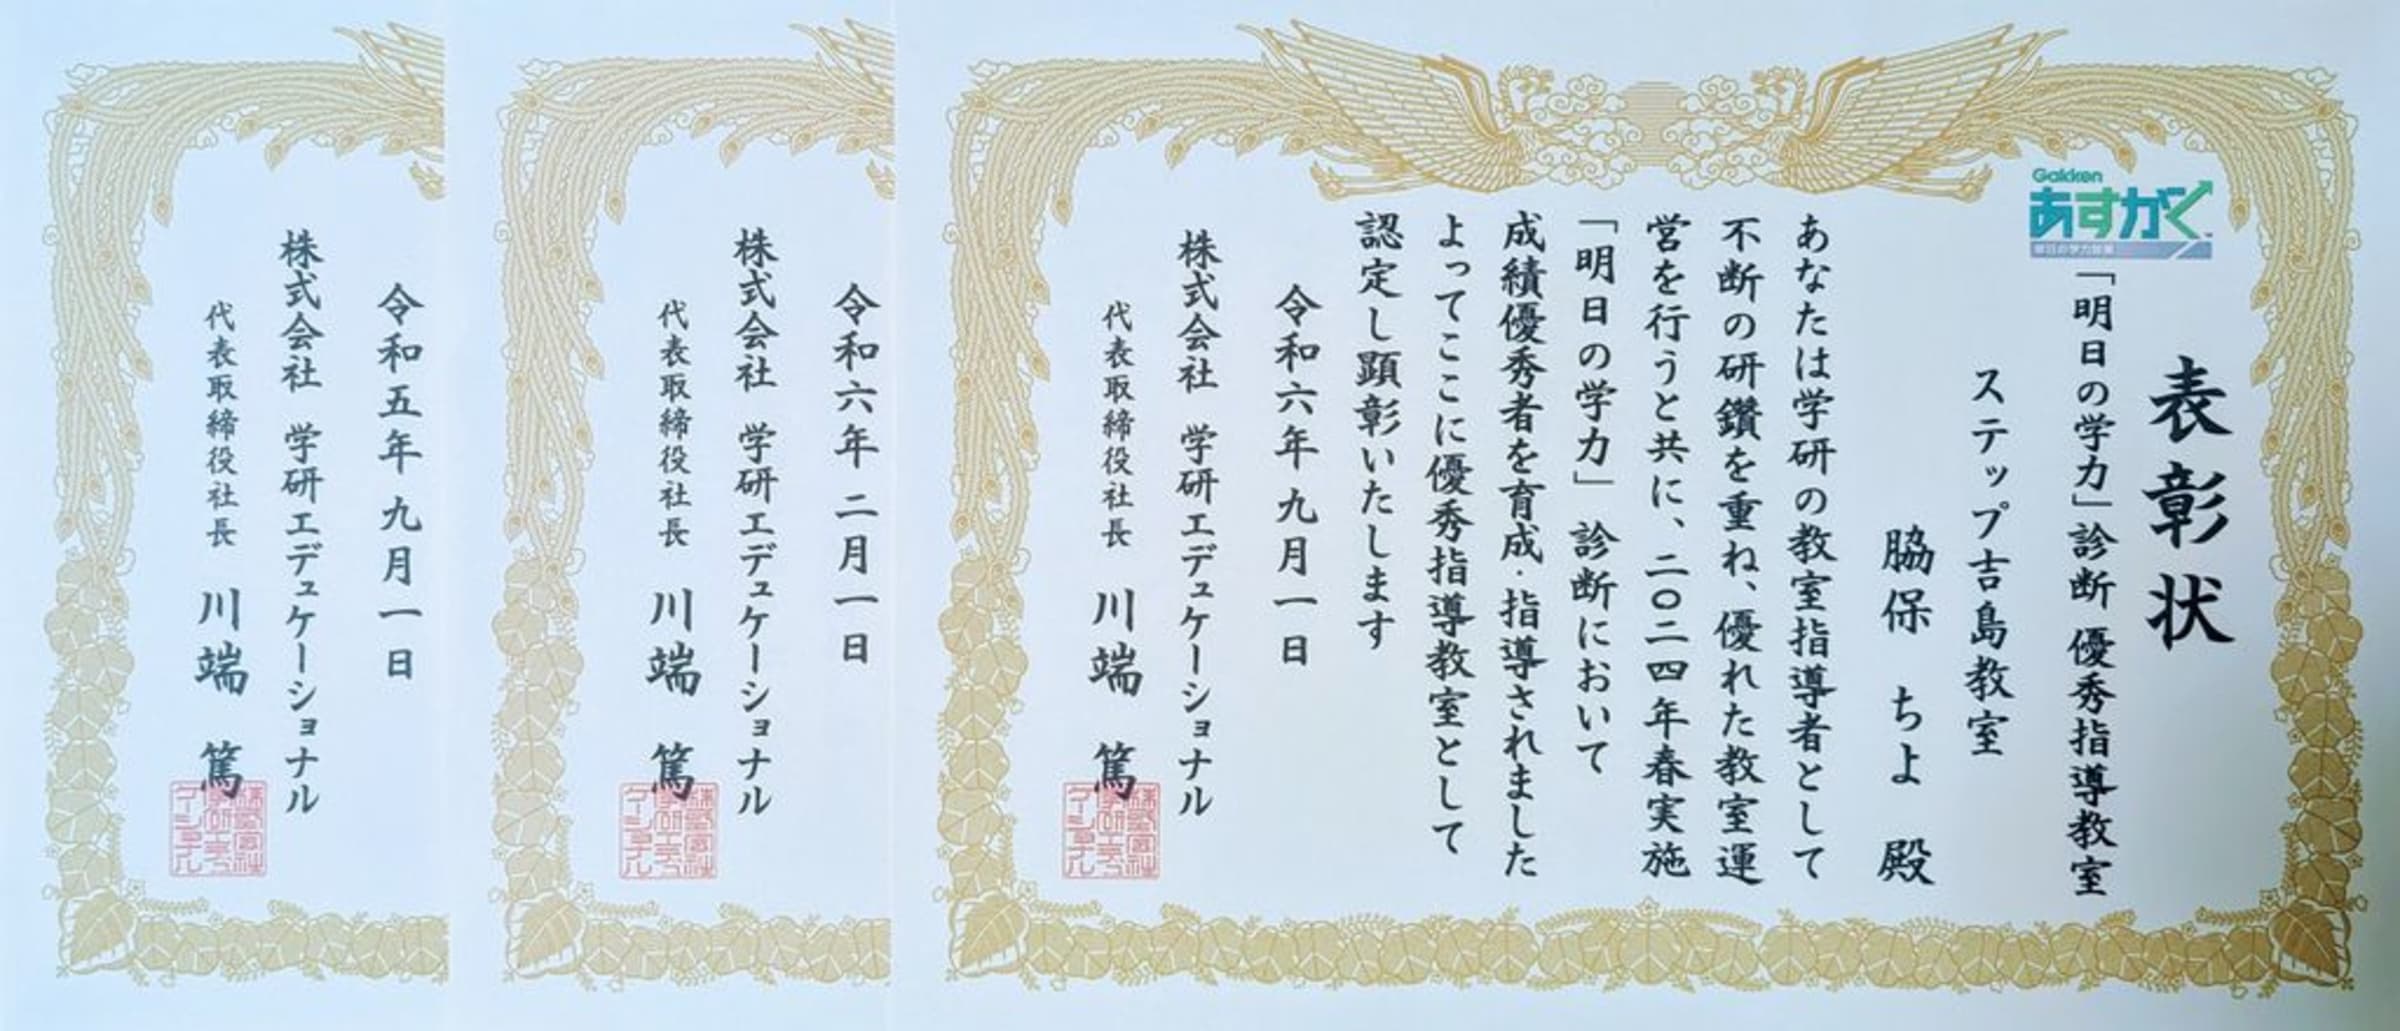 表彰状
Gakken
あすがく
「明日の学力」診断 優秀指導教室
ステップ吉島教室
脇保 ちよ 殿
あなたは学研の教室指導者として
不断の研鑽を重ね、優れた教室運
営を行うと共に、二〇二四年春実施
「明日の学力」診断において
成績優秀者を育成・指導されました
よってここに優秀指導教室として
認定し顕彰いたします
令和六年 九月一日
株式会社 学研エデュケーショナル
代表取締役社長 川端 篤
令和六年 二月一日
株式会社 学研エデュケーショナル
代表取締役社長 川端 篤
令和五年 九月一日
株式会社 学研エデュケーショナル
代表取締役社長 川端 篤